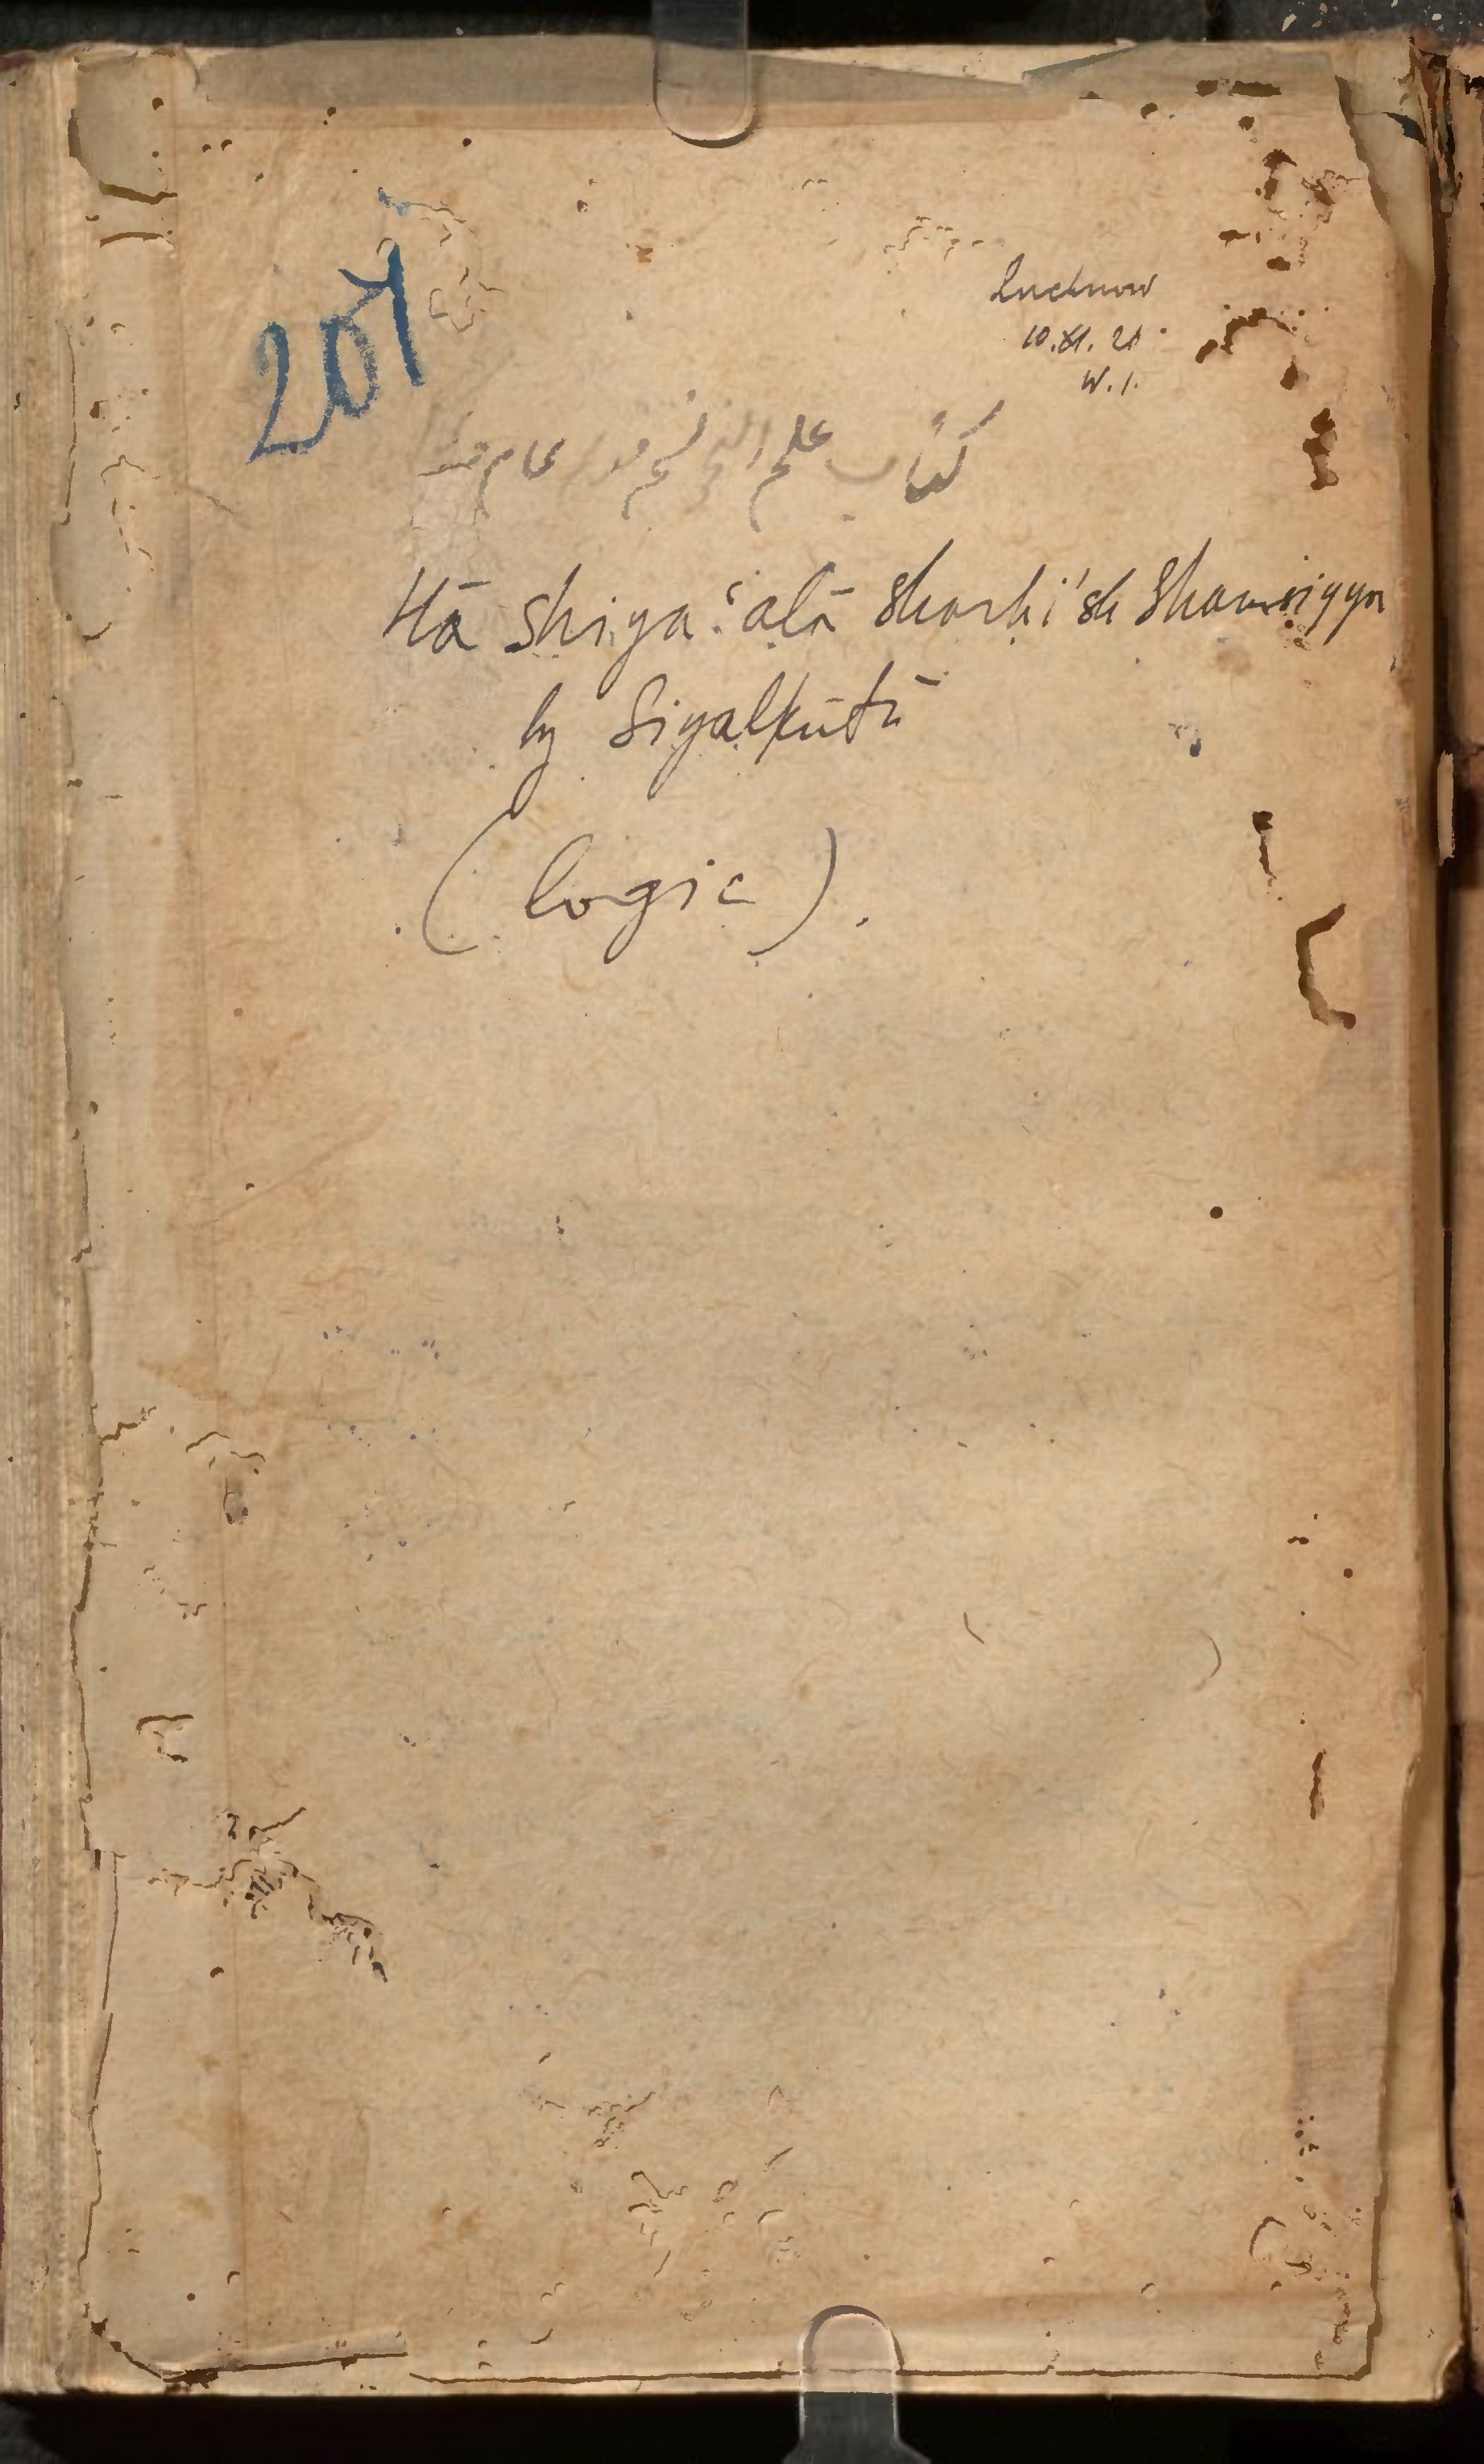 207
Lucknow
10.XI.26
W.I.
كتاب علم
Hāshiya ʿalā Sharḥi'sh Shamsiyya
by Siyalkūtī
(logic).